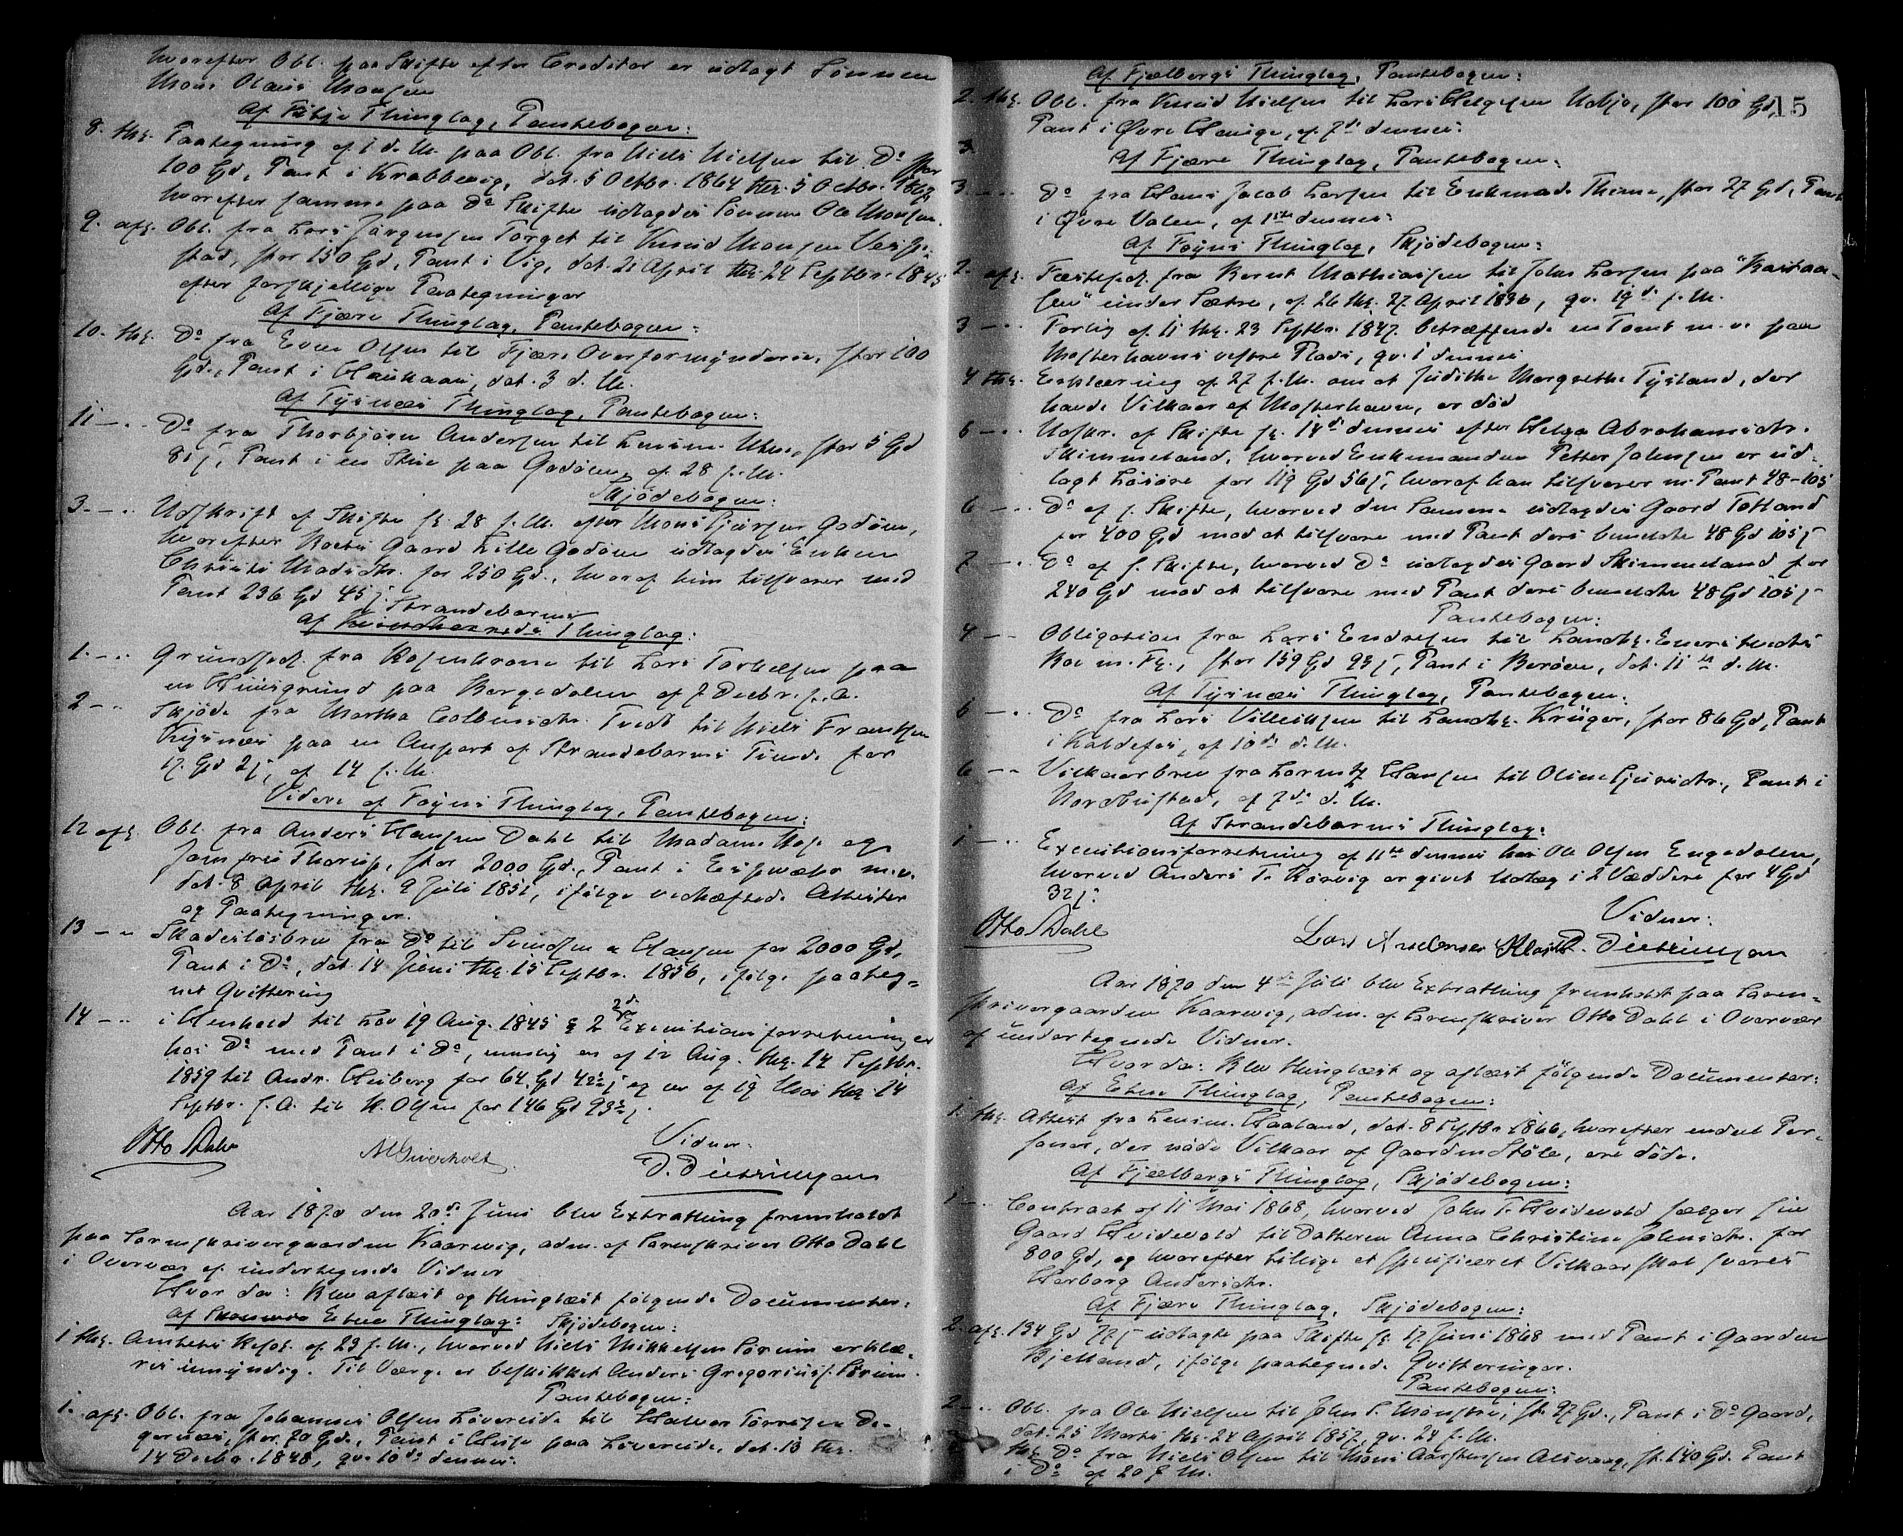 hvorefter Obl. paa Skifte efter Creditor er udlagt Sønnen
Mons Olaus Monsen
Af Fitje Thinglag, Pantebogen:
8. thl. Paategning af 1 d. M. paa Obl. fra Niels Nielsen til Do stor
100 Spd, Pant i Krabbevig, dat. 5 Octbr. 1864 thl. 5 Octbr. 1869
hvorefter samme paa Do Skifte udlagdes Sønnen Ole Monsen.
9. afl. Obl. fra Lars Jørgensen Torget til Knud Monsen Vespe-
stad, stor 150 Spd, Pant i Vig, dat. 21 April thl. 24 Septbr. 1845
efter forskjellige Paategninger
Af Fjære Thinglag, Pantebogen:
10. thl. Do fra Even Olsen til Fjære Overformynderie, stor 100
Spd., Pant i Haukaas, dat. 3 d. M.
Af Tysnæs Thinglag, Pantebogen:
11 - .. Do fra Thorbjørn Andersen til Lensm. Utne, stor 5 Spd
81 s, Pant i en Stue paa Godøen, af 28 f. M.
Skjødebogen:
3. - .. Udskrift af Skifte sl. 28 f. M. efter Mons Sjursen Godøen,
hvorefter Boets Gaard Lille Godøen udlagdes Enken
Christi Madsdtr. for 250 Spd., hvoraf hun tilsvarer med
Pant 236 Spd 45 s.
Strandebarms
Af Thinglag:
1. - .. Grundsed. fra Rosenkrone til Lars Torkelsen paa
en Huusgrund paa Bergedalen af 7 Decbr. f. A.
2 - .. Skjøde fra Martha Colbensdtr. Tvedt til Niels Frantsen
Kysnæs paa en Anpart af Strandebarms Tiende for
17 Spd 2 s, af 14 f. M.
Videre af Føyns Thinglag, Pantebogen:
12 afl. Obl. fra Anders Hansen Dahl til Madame Moe og
Jomfru Thorup, stor 2000 Spd., Pant i Espevær m.v.
dat. 8 April thl. 9 Juli 1851, ifølge vedhæftede Attester
og Paategninger.
13 - .. Skadesløsbrev fra Do til Svendsen & Hansen for 2000 Spd,
Pant i Do, dat. 14 Juni thl. 15 Septbr. 1856, ifølge paateg-
net Qvittering
14 - .. i Henhold til Lov 19 Aug. 1845 § 2 2de Executionsforretninger
hos Do med Pant i Do, nemlig en af 12 Aug. thl. 14 Septbr.
1859 til Andr. Heiberg for 64 Spd 42½ s og en af 19 Mai thl. 14
Septbr. s. A. til N. Olsen for 146 Spd 93½ s.
Vidner:
Otto Dahl D. Didriksen
Aar 1870 den 20de Juni blev Extrathing fremholdt
paa Sorenskrivergaarden Kaarevig, adm. af Sorenskriver Otto Dahl
i Overvær af undertegnede Vidner
Hvor da: Blev aflæst og thinglæst følgende Documenter:
Af Etne Thinglag: Skjødebogen:
1 thl. Amtets Resol. af 23 f. M., hvorved Niels Mikkelsen Sørum erklæ-
res umyndig. Til Værge er beskikket Anders Gregoriuss. Sørum.
Pantebogen:
1. afl. Obl. fra Johannes Olsen Løvereide til Halvor Tørresen Da-
gsnæs, stor 70 Spd., Pant i Huse paa Løvereide, dat. 13 thl.
14 Decbr. 1848, qv. 10de dennes.
15
Af Fjelbergs Thinglag, Pantebogen:
2. thl. Obl. fra Knud Nielsen til Lars Helgesen Udbjo, stor 100 Spd,
Pant i Øvre Hauge, af 7de dennes.
3. Af Fjære Thinglag, Pantebogen:
3. - .. Do fra Hans Jacob Larsen til Enkemad. Thime, stor 27 Spd, Pant
i Øvre Valen, af 11te dennes
Af Føyns Thinglag, Skjødebogen:
2. afl. Fæstesed. fra Bernt Mathiassen til John Larsen paa "Kastaa-
sen" under Sætre, af 26 thl. 27 April 1830, qv. 19de f. M.
3 - .. Forlig af 11 thl. 23 Septbr. 1847 betræffende en Tomt m. v. paa
Mosterhavns vestre Plads, qv. 1 dennes
4 thl. Erklæring af 27 f. M. om at Judithe Margrethe Tysland, der
havde Vilkaar af Mosterhavn, er død
5 - .. Udskr. af Skifte sl. 14de dennes efter Helga Abrahamsdtr.
Skimmeland, hvorved Enkemanden Petter Johnsen er ud-
lagt Løsøre for 119 Spd 56 s, hvoraf han tilsvarer m. Pant 48-105
6 - .. Do af s. Skifte, hvorved den Samme udlagdes Gaard Totland
for 400 Spd mod at tilsvare med Pant deri bemeldte 48 Spd 105 s
7 - .. Do af s. Skifte, hvorved Do udlagdes Gaard Skimmeland for
240 Spd mod at tilsvare med Pant deri bemeldte 48 Spd 105 s
Pantebogen:
4 - - Obligation fra Lars Endresen til Landhl. Enevoldsens
Boe m. Fl., stor 159 Spd 93 s, Pant i Berøen, dat. 11te d. M.
Af Tysnæs Thinglag, Pantebogen:
5 - .. Do fra Lars Villeiksen til Landhl. Krüger, stor 86 Spd, Pant
i Koldefos, af 10de d. M.
6 - - Vilkaarbrev fra Lorentz Hansen til Oline Sjursdtr., Pant i
Nordhustad, af 7de d. M.
Af Strandebarms Thinglag:
1 - .. Executionsforretning af 11te dennes hos Ole Olsen Engedalen,
hvorved Anders T. Kosvig er givet Udlæg i 2 Væddere for 4 Spd
32 s.
Vidner:
Otto Dahl Lars Andersen D. Didriksen
Aar 1870 den 4de Juli blev Extrathing fremholdt paa Soren-
skrivergaarden Kaarevig, adm. af Sorenskriver Otto Dahl i Overvær
af undertegnede Vidner.
Hvor da: Blev thinglæst og aflæst følgende Documenter:
Af Etne Thinglag, Pantebogen:
1. thl. Attest fra Lensm. Haaland, dat. 8 Septbr. 1866, hvorefter endeel Per-
soner, der nøde Vilkaar af Gaarden Støle, ere døde.
Af Fjelbergs Thinglag, Skjødebogen:
1 - .. Contract af 11 Mai 1868, hvorved John T. Hvidevold sælger sin
Gaard Hvidevold til Datteren Anna Christine Johnsdtr. for
800 Spd, og hvorefter tillige et specificeret Vilkaar skal svares
Herborg Andersdtr.
Af Fjære Thinglag, Skjødebogen:
2. afl. 134 Spd 77 s udlagte paa Skifte sl. 17 Juni 1868 med Pant i Gaarden
Bjelland, ifølge paategnede Qvitteringer.
Pantebogen:
2 - .. Obl. fra Ole Nielsen til John L. Mønstre, st. 97 Spd., Pant i Do Gaard,
dat. 25 Marts thl. 24 April 1857, qv. 24 f. M.
3 thl. Do fra Niels Olsen til Mons Aarstensen Alsvaag, st. 140 Spd. Pant
i Do af 20 f. M.